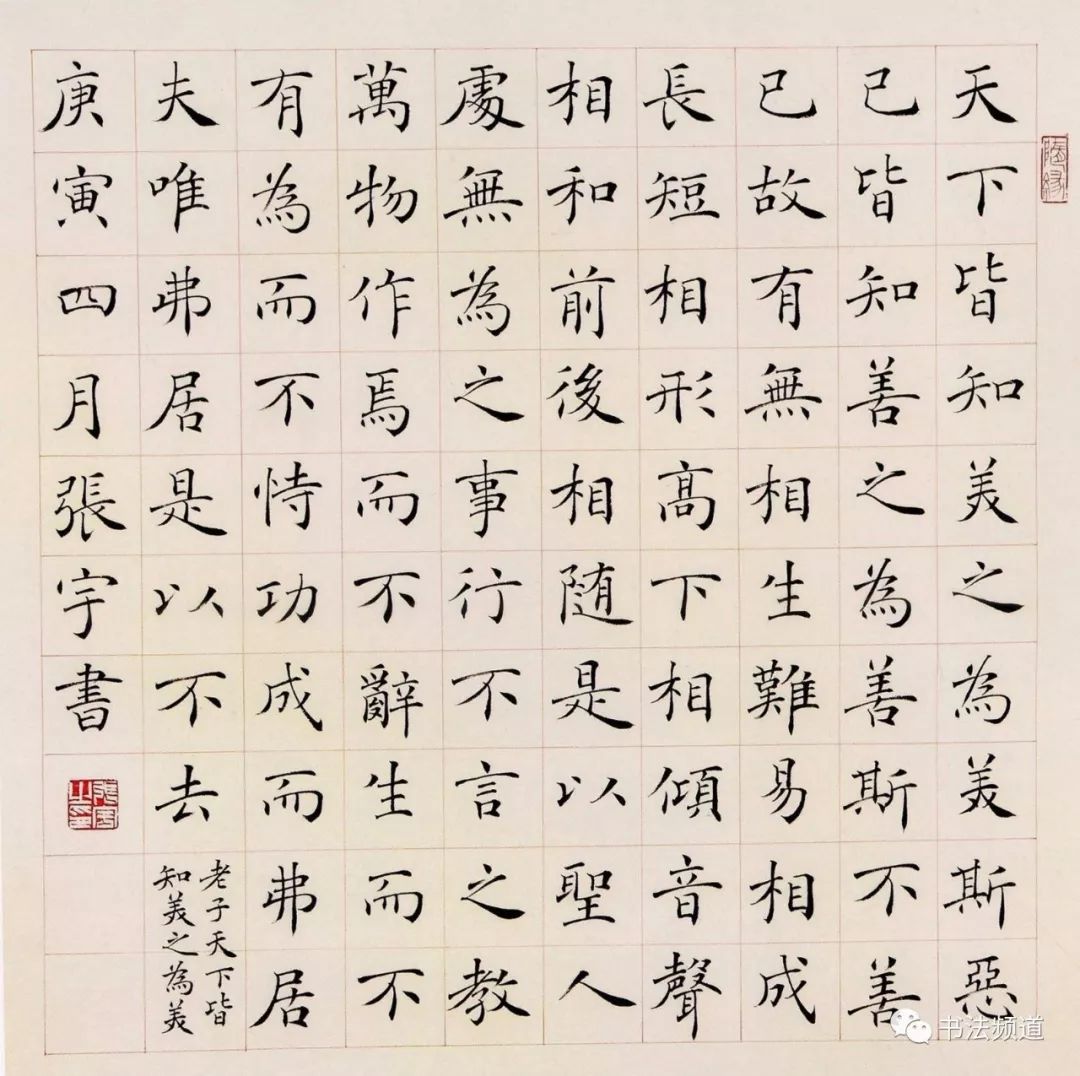 天下皆知美之為美斯惡
已皆知善之為善斯不善
已故有無相生難易相成
長短相形高下相傾音聲
相和前後相随是以聖人
處無為之事行不言之教
萬物作焉而不辭生而不
有為而不恃功成而弗居
夫唯弗居是以不去
老子天下皆
知美之為美
庚寅四月張宇書
书法频道